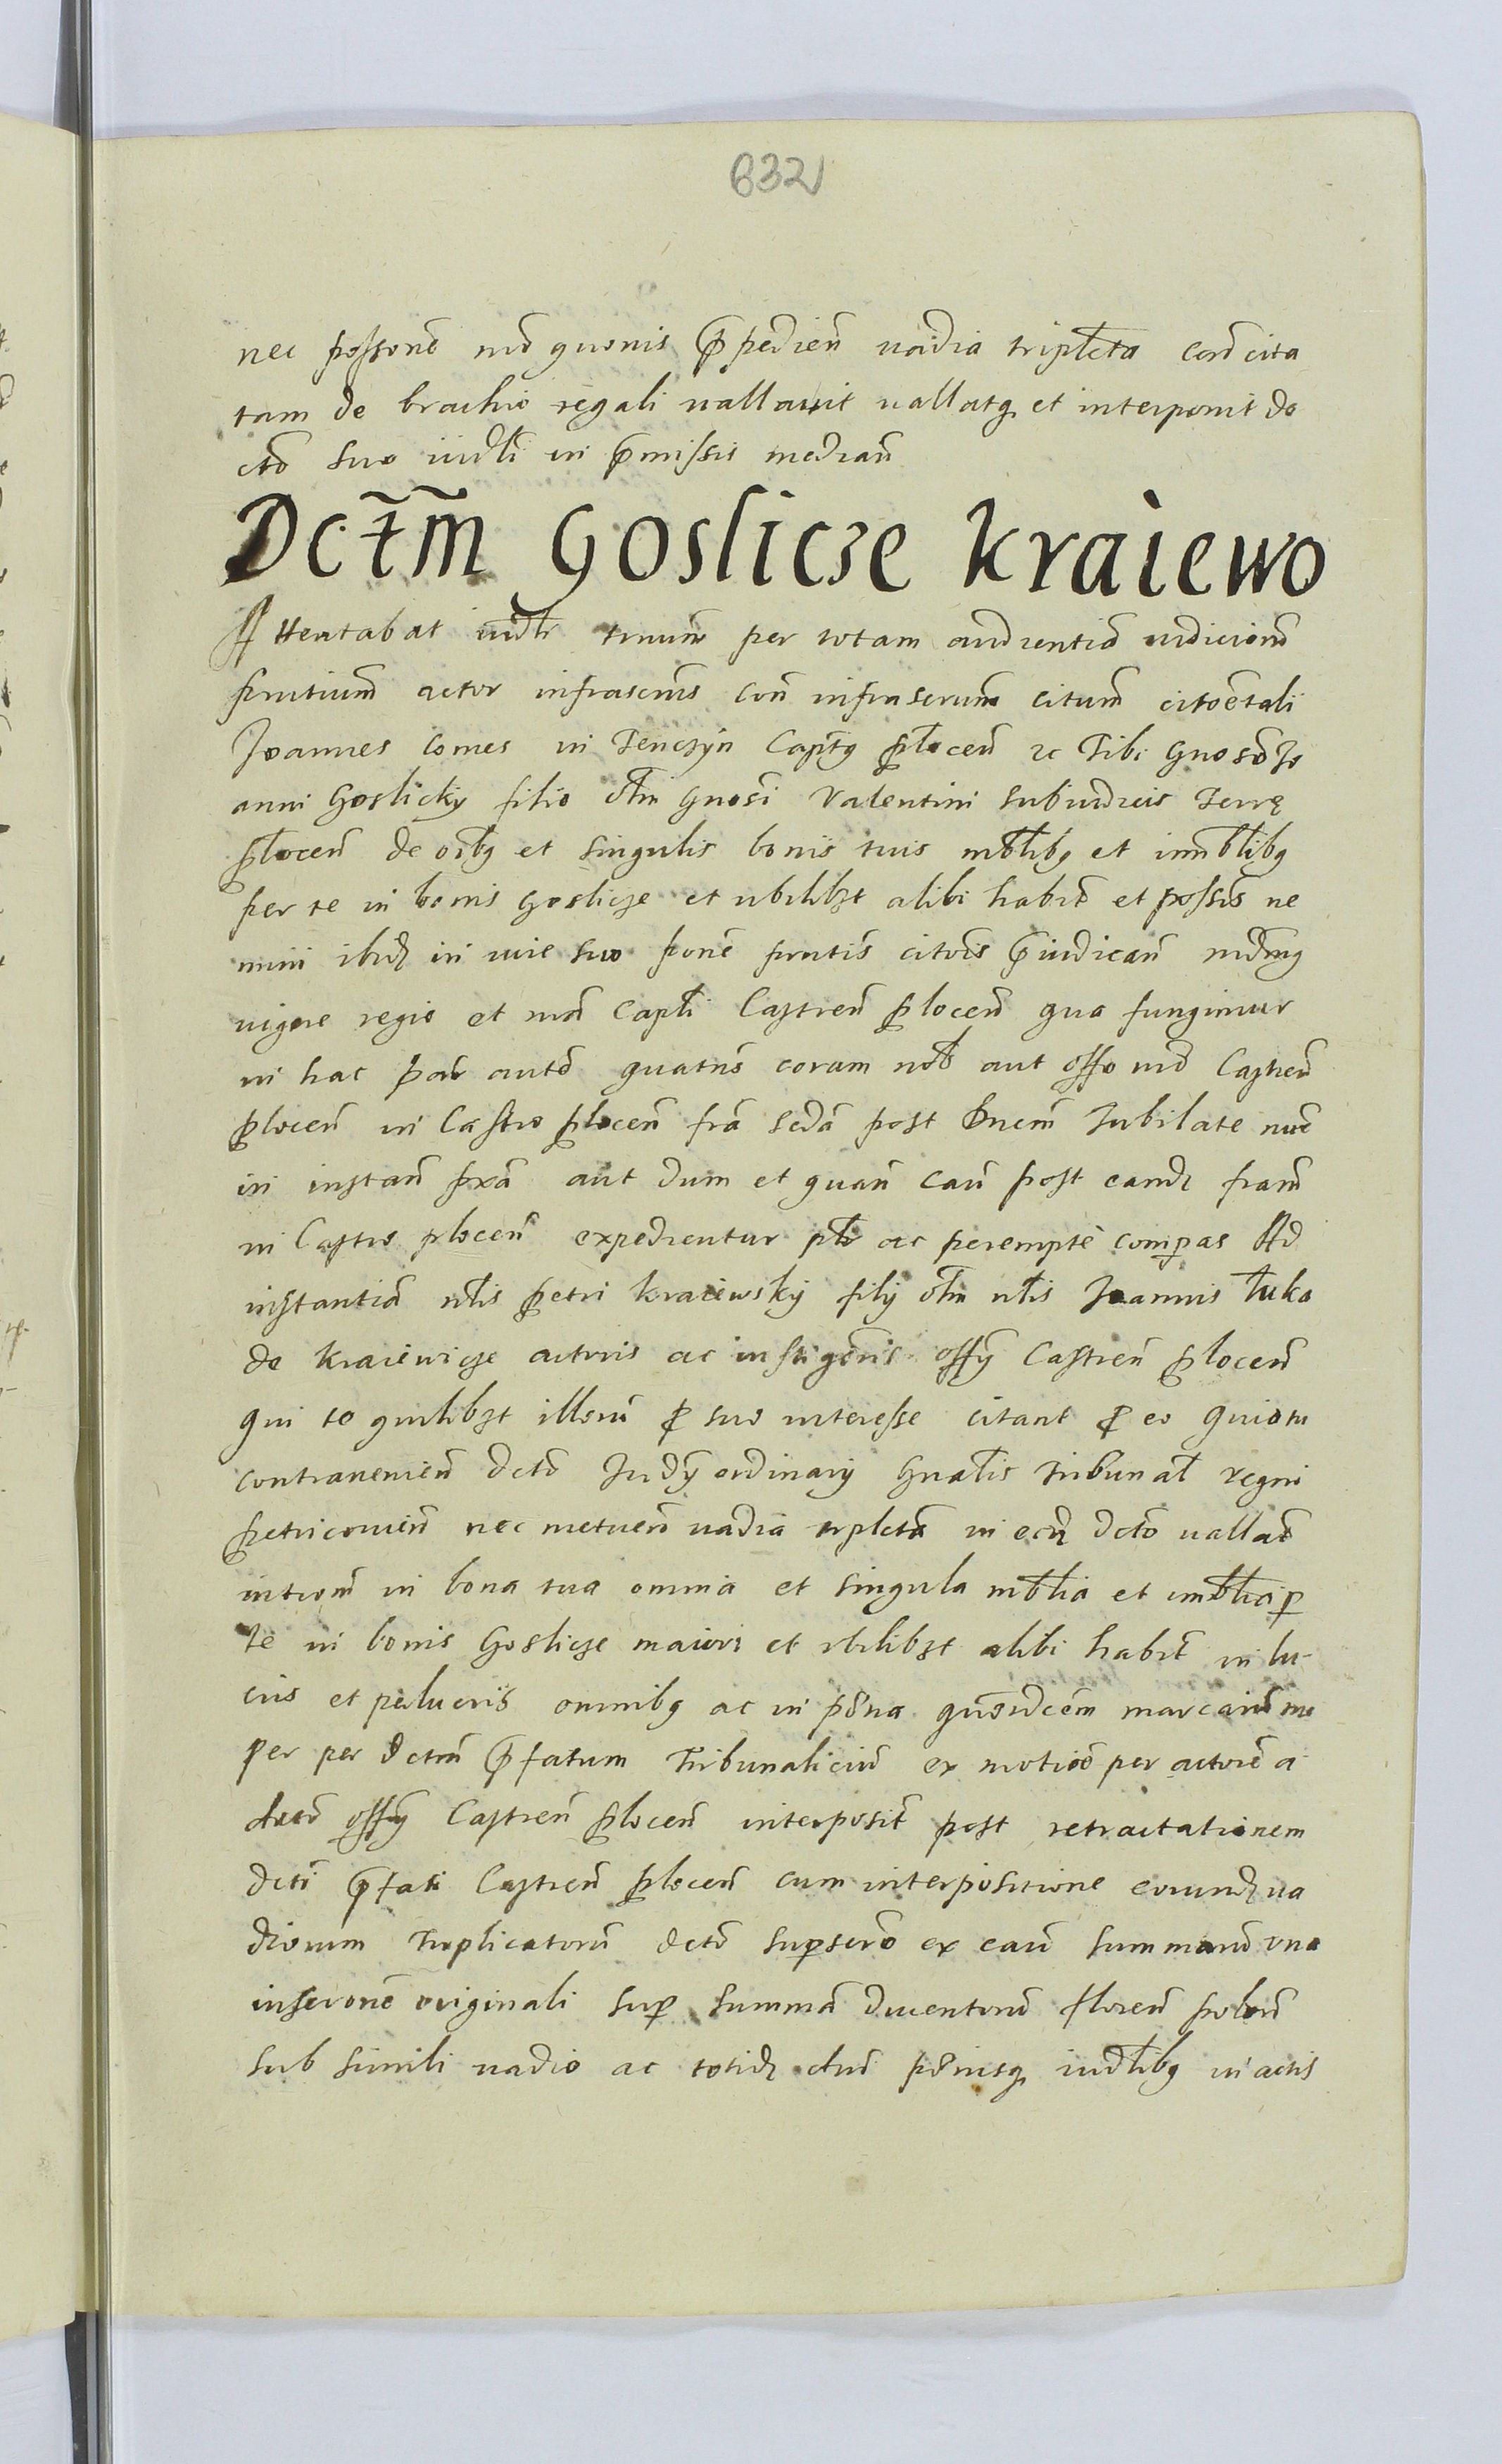 632
nec possone mō quovis p̄pedień vadia tripl̄cta cońcita
tam de brachio regali vallavit vallatq, et interponit de
cto suo iudli in p̄missis median̄
Dct̃m̃ Goslicze Kraiewo
Attentabat iudlr trinum per totam audientiā iudiciorū
prntium actor infrascrius con infrascrum citum citoē tali
Joannes Comes in Tenczyn Capts plocen̄ rc Tibi Gnoso Jo
anni Goslicky filio olm Gnosi Valentini Subiudicis Terrę
plocen̄ de oībg et singulis bonis tuis mbĺibg et immbĺibg
per te in bonis Goslicze et ubilibzt alibi habit̄ et possis ne
mini ibidz in iure suo pone prntis citois p̄iudican̄ mdmg
vigore regio et mā Capłi Castren̄ plocen̄ qua fungimur
in hac par autē quatns coram nob̄ aut offo nrō Castren̄
plocen̄ in Castro plocen̄ frā sedā post Dnem̄ Jubilate nuc̄
in instan̄ pxā aut dum et quan̄ cau̅ post eandz fram̄
in Castro plocen̄ expedientur pltr ac peremptè compas Ad
instantiā nlis Petri Kraiewsky filÿ olm nlis Joannis Łuka
de Kraiewicze actoris ac instigōris offÿ Castren̄ plocen̄
qui te quilibzt illorū p suo interesse citant p eo Quia tu
contravenień dctō Judÿ ordinarÿ Gnalis Tribunal̄ regni
petricovień nec metuen̄ vadia triplctā in eodz dcto vallat̄
introm̄ in bona tua omnia et singula mbl̄ia et immbl̄ia p
te in bonis Goslicze maiori et ubilibzt alibi habit̄ in lu-
criis et perlucriis omnibg ac in poena quindecem marcarū nu
per per dctm̄ p̄fatum Tribunaliciū ex motiōe per actorē a
dcto offÿ Castren̄ plocen̄ interposit̄ post retractationem
dcti p̄fati Castren̄ plocen̄ cum interpositione eorundz va
diorum triplicatorū dctō superserō ex cau̅ summarū una
inscrone originali sup summā ducentorū floren̄ polon̄
sub simili vadio ac totidz dnī poenisq, iudlibg in actis